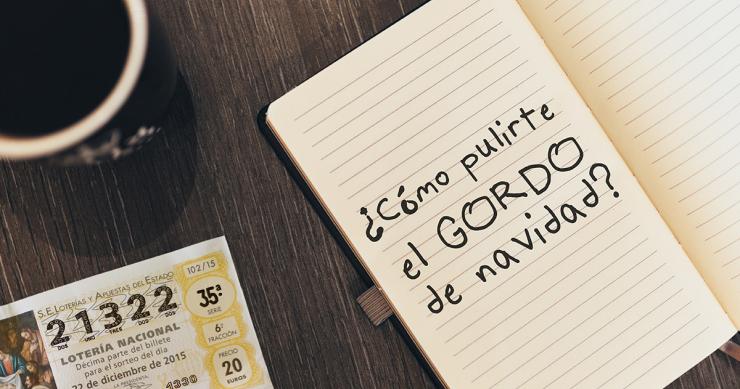 ¿Cómo pulirte
el GORDO
de navidad?
S.E. LOTERÍAS Y APUESTAS DEL ESTADO
102/15
21322
DOS UNO TRES DOS DOS
35ª
SERIE
LOTERÍA NACIONAL
6ª
FRACCIÓN
Décima parte del billete
para el sorteo del día
22 de diciembre de 2015
PRECIO
20
EUROS
LA PRESIDENTA,
1330